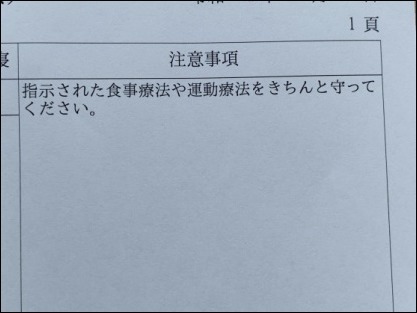 1 頁
注意事項
指示された食事療法や運動療法をきちんと守って
ください。